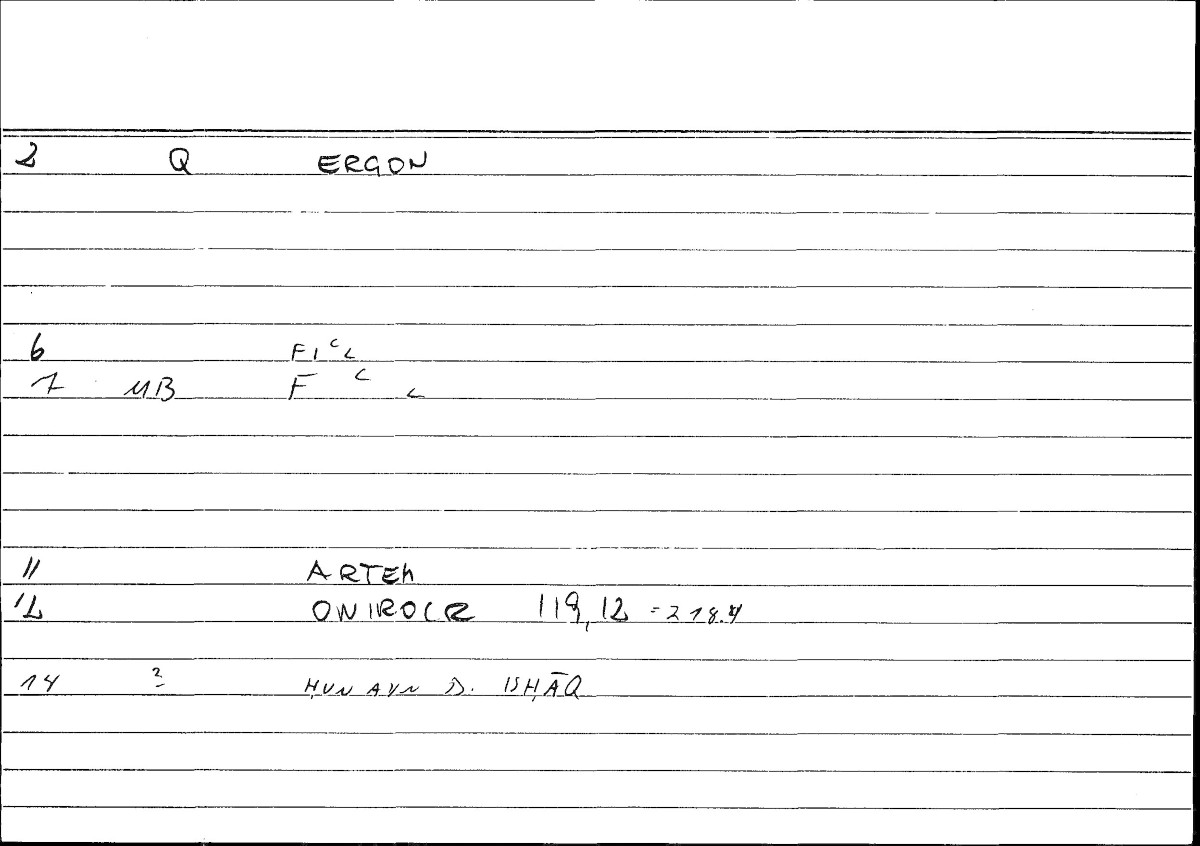 2 Q ERGON
6 FI ᶜ L
7 MB F ᶜ L
11 ARTEM
12 ONIROCR 119,12 = 218.4
14 2 ḤUNAYN B. ISḤĀQ